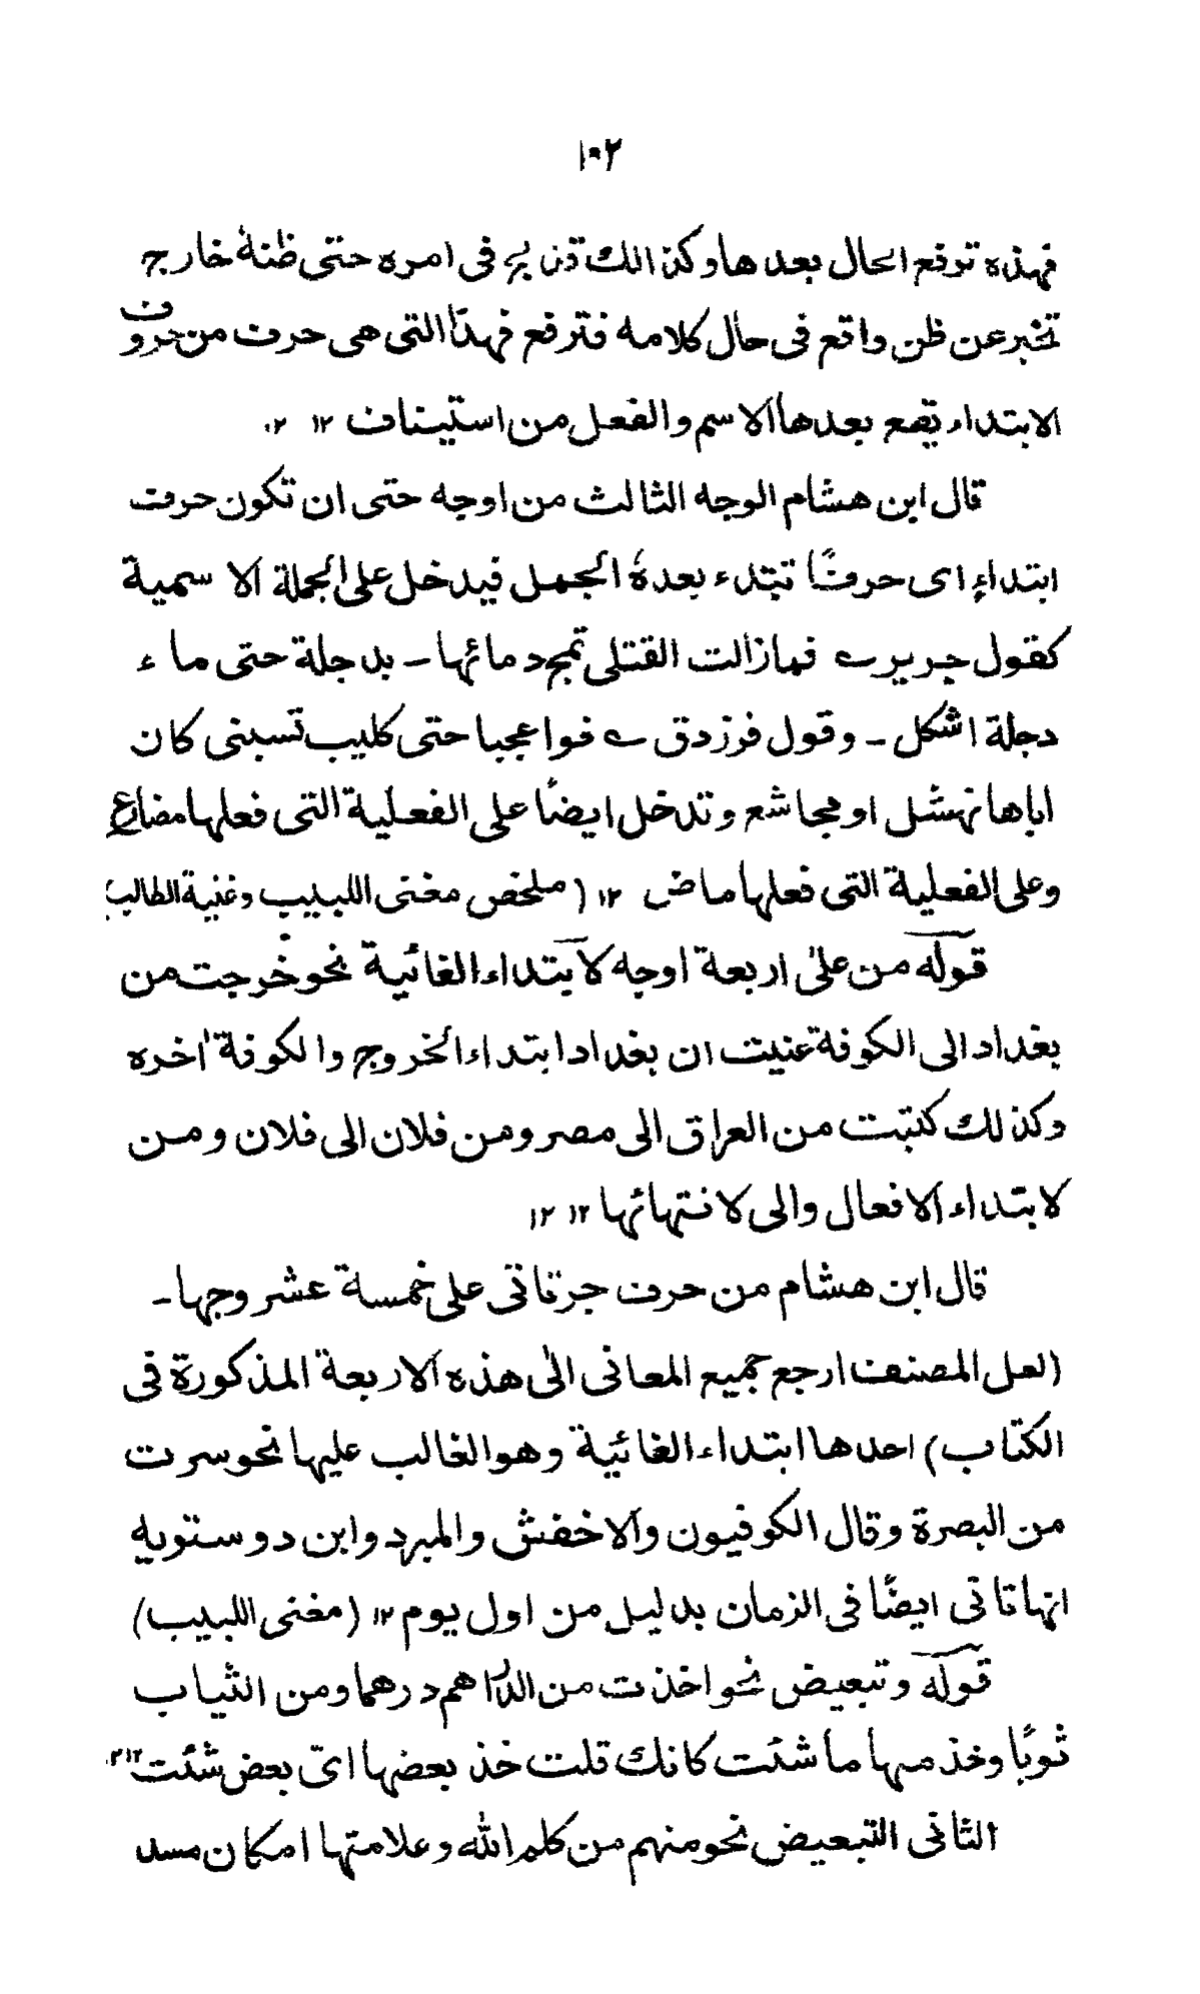 ١٠٢
فهذه ترفع الحال بعدها وكذالك قد زيد فى امره حتى ظنهٗ خارج
تخبر عن ظن واقع فى حال كلامه فترفع فهذا التى هى حرف من حروف
الابتداء يقع بعدها الاسم والفعل من استيناف ١٢ ٢.
قال ابن هشام الوجه الثالث من اوجه حتى ان تكون حرف
ابتداءٍ اى حرفًا تبتدء بعدهٗ الجمل فيدخل على الجملة الاسمية
كقول جرير ے فمازالت القتلى تمج دمائها ــ بدجلة حتى ماء
دجلة اشكل ــ وقول فرزدق ے فواعجبا حتى كليب تسبنى كان
اباها نهشل او مجاشع وتدخل ايضًا على الفعلية التى فعلها مضارع
وعلى الفعلية التى فعلها ماض ١٢ (ملخص مغنى اللبيب وغنية الطالب)
قوله من على اربعة اوجه لابتداء الغائية نحو خرجت من
بغداد الى الكوفة عنيت ان بغداد ابتداء الخروج والكوفة اخره
وكذلك كتبت من العراق الى مصر ومن فلان الى فلان ومن
لابتداء الافعال والى لانتهائها ١٢ ١٢
قال ابن هشام من حرف جر تاتى على خمسة عشر وجها ــ
(لعل المصنف ارجع جميع المعانى الى هذه الاربعة المذكورة فى
الكتاب) احدها ابتداء الغائية وهو الغالب عليها نحو سرت
من البصرة وقال الكوفيون والاخفش والمبرد وابن دوستويه
انها تاتى ايضًا فى الزمان بدليل من اول يوم ١٢ (مغنى اللبيب)
قوله وتبعيض نحو اخذت من الدراهم درهما ومن الثياب
ثوبًا وخذ منها ما شئت كانك قلت خذ بعضها اىّ بعض شئت ١٢ ٢.
الثانى التبعيض نحو منهم من كلم الله وعلامتها امكان مسد